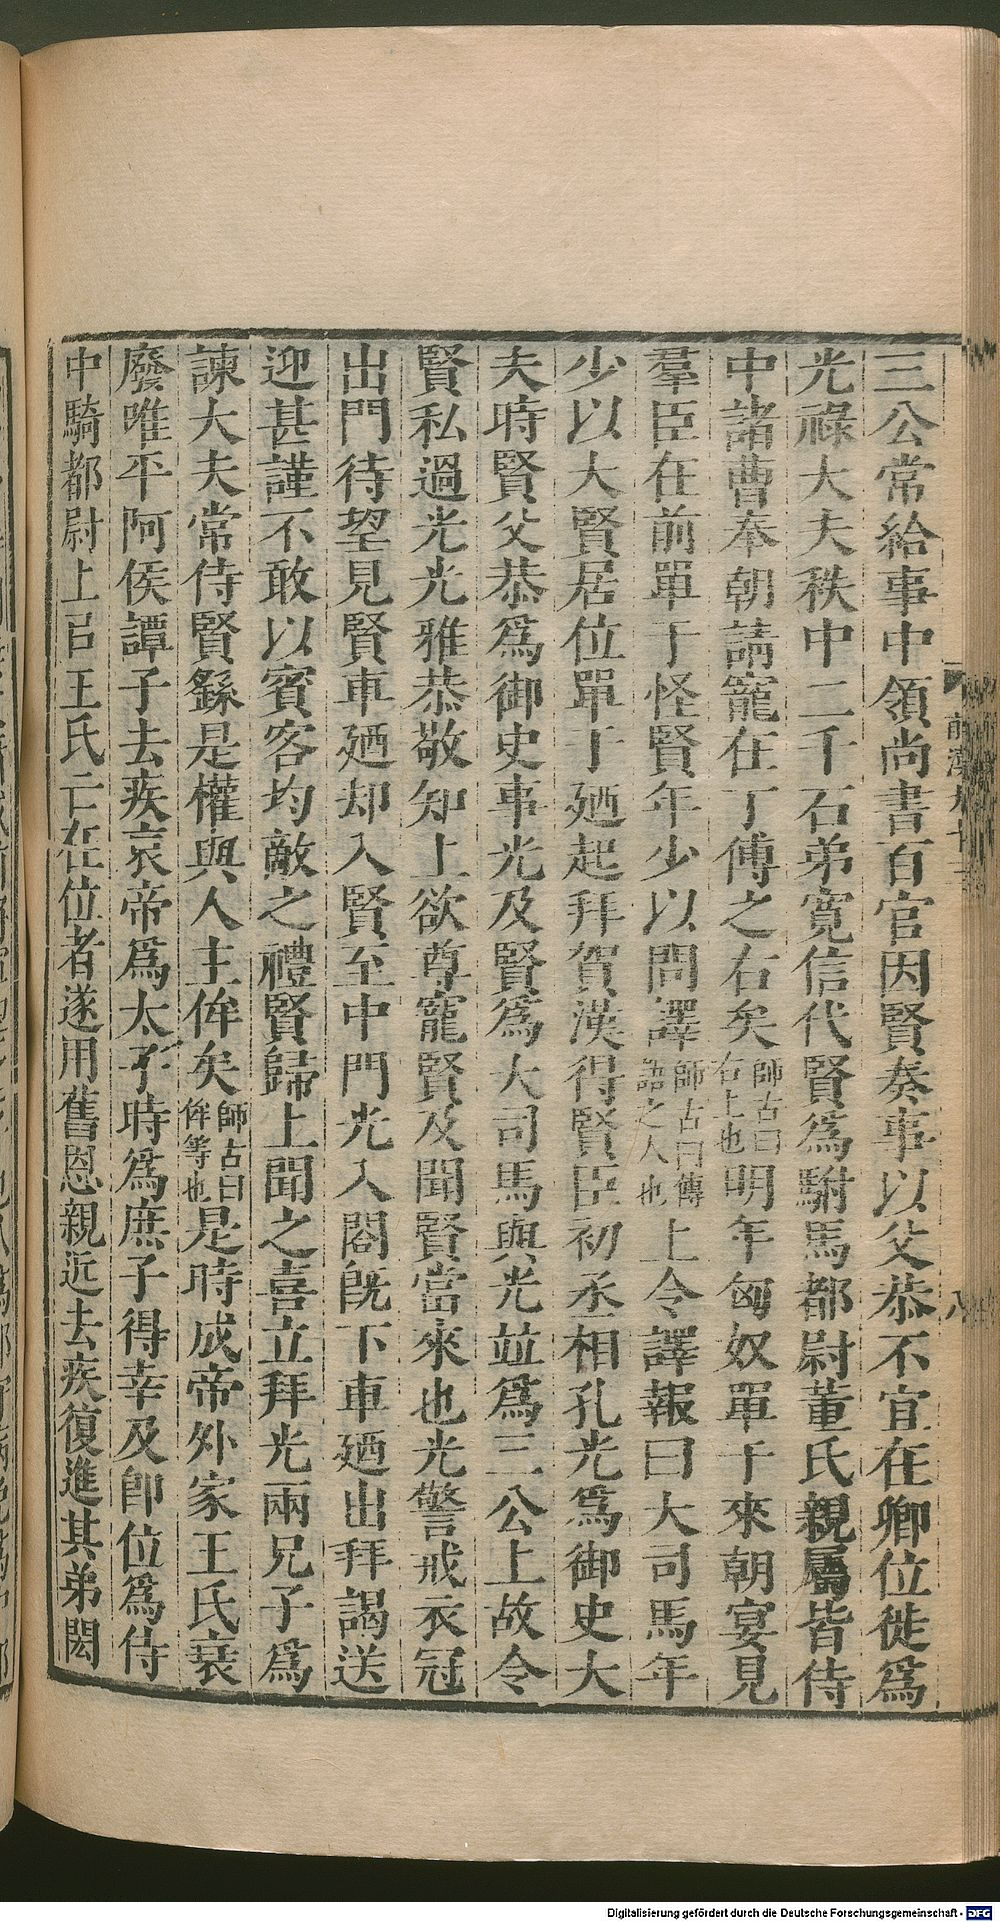 三公常給事中領尚書百官因賢奏事以父恭不宜在卿位徙爲
光祿大夫秩中二千石弟寬信代賢爲駙馬都尉董氏親屬皆侍
中諸曹奉朝請寵在丁傅之右矣師古曰右上也明年匈奴單于來朝宴見
羣臣在前單于怪賢年少以問譯師古曰傳語之人也上令譯報曰大司馬年
少以大賢居位單于廼起拜賀漢得賢臣初丞相孔光爲御史大
夫時賢父恭爲御史事光及賢爲大司馬與光並爲三公上故令
賢私過光光雅恭敬知上欲尊寵賢及聞賢當來也光警戒衣冠
出門待望見賢車廼却入賢至中門光入閤旣下車廼出拜謁送
迎甚謹不敢以賓客均敵之禮賢歸上聞之喜立拜光兩兄子爲
諫大夫常侍賢繇是權與人主侔矣師古曰侔等也是時成帝外家王氏衰
廢唯平阿侯譚子去疾哀帝爲太子時爲庶子得幸及卽位爲侍
中騎都尉上以王氏亡在位者遂用舊恩親近去疾復進其弟閎
前漢九十三
八
Digitalisierung gefördert durch die Deutsche Forschungsgemeinschaft - DFG